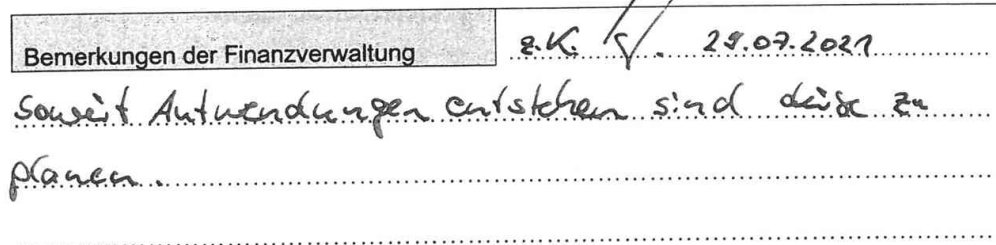 Bemerkungen der Finanzverwaltung z.K. 29.07.2021
Soweit Aufwendungen entstehen sind diese zu
planen.